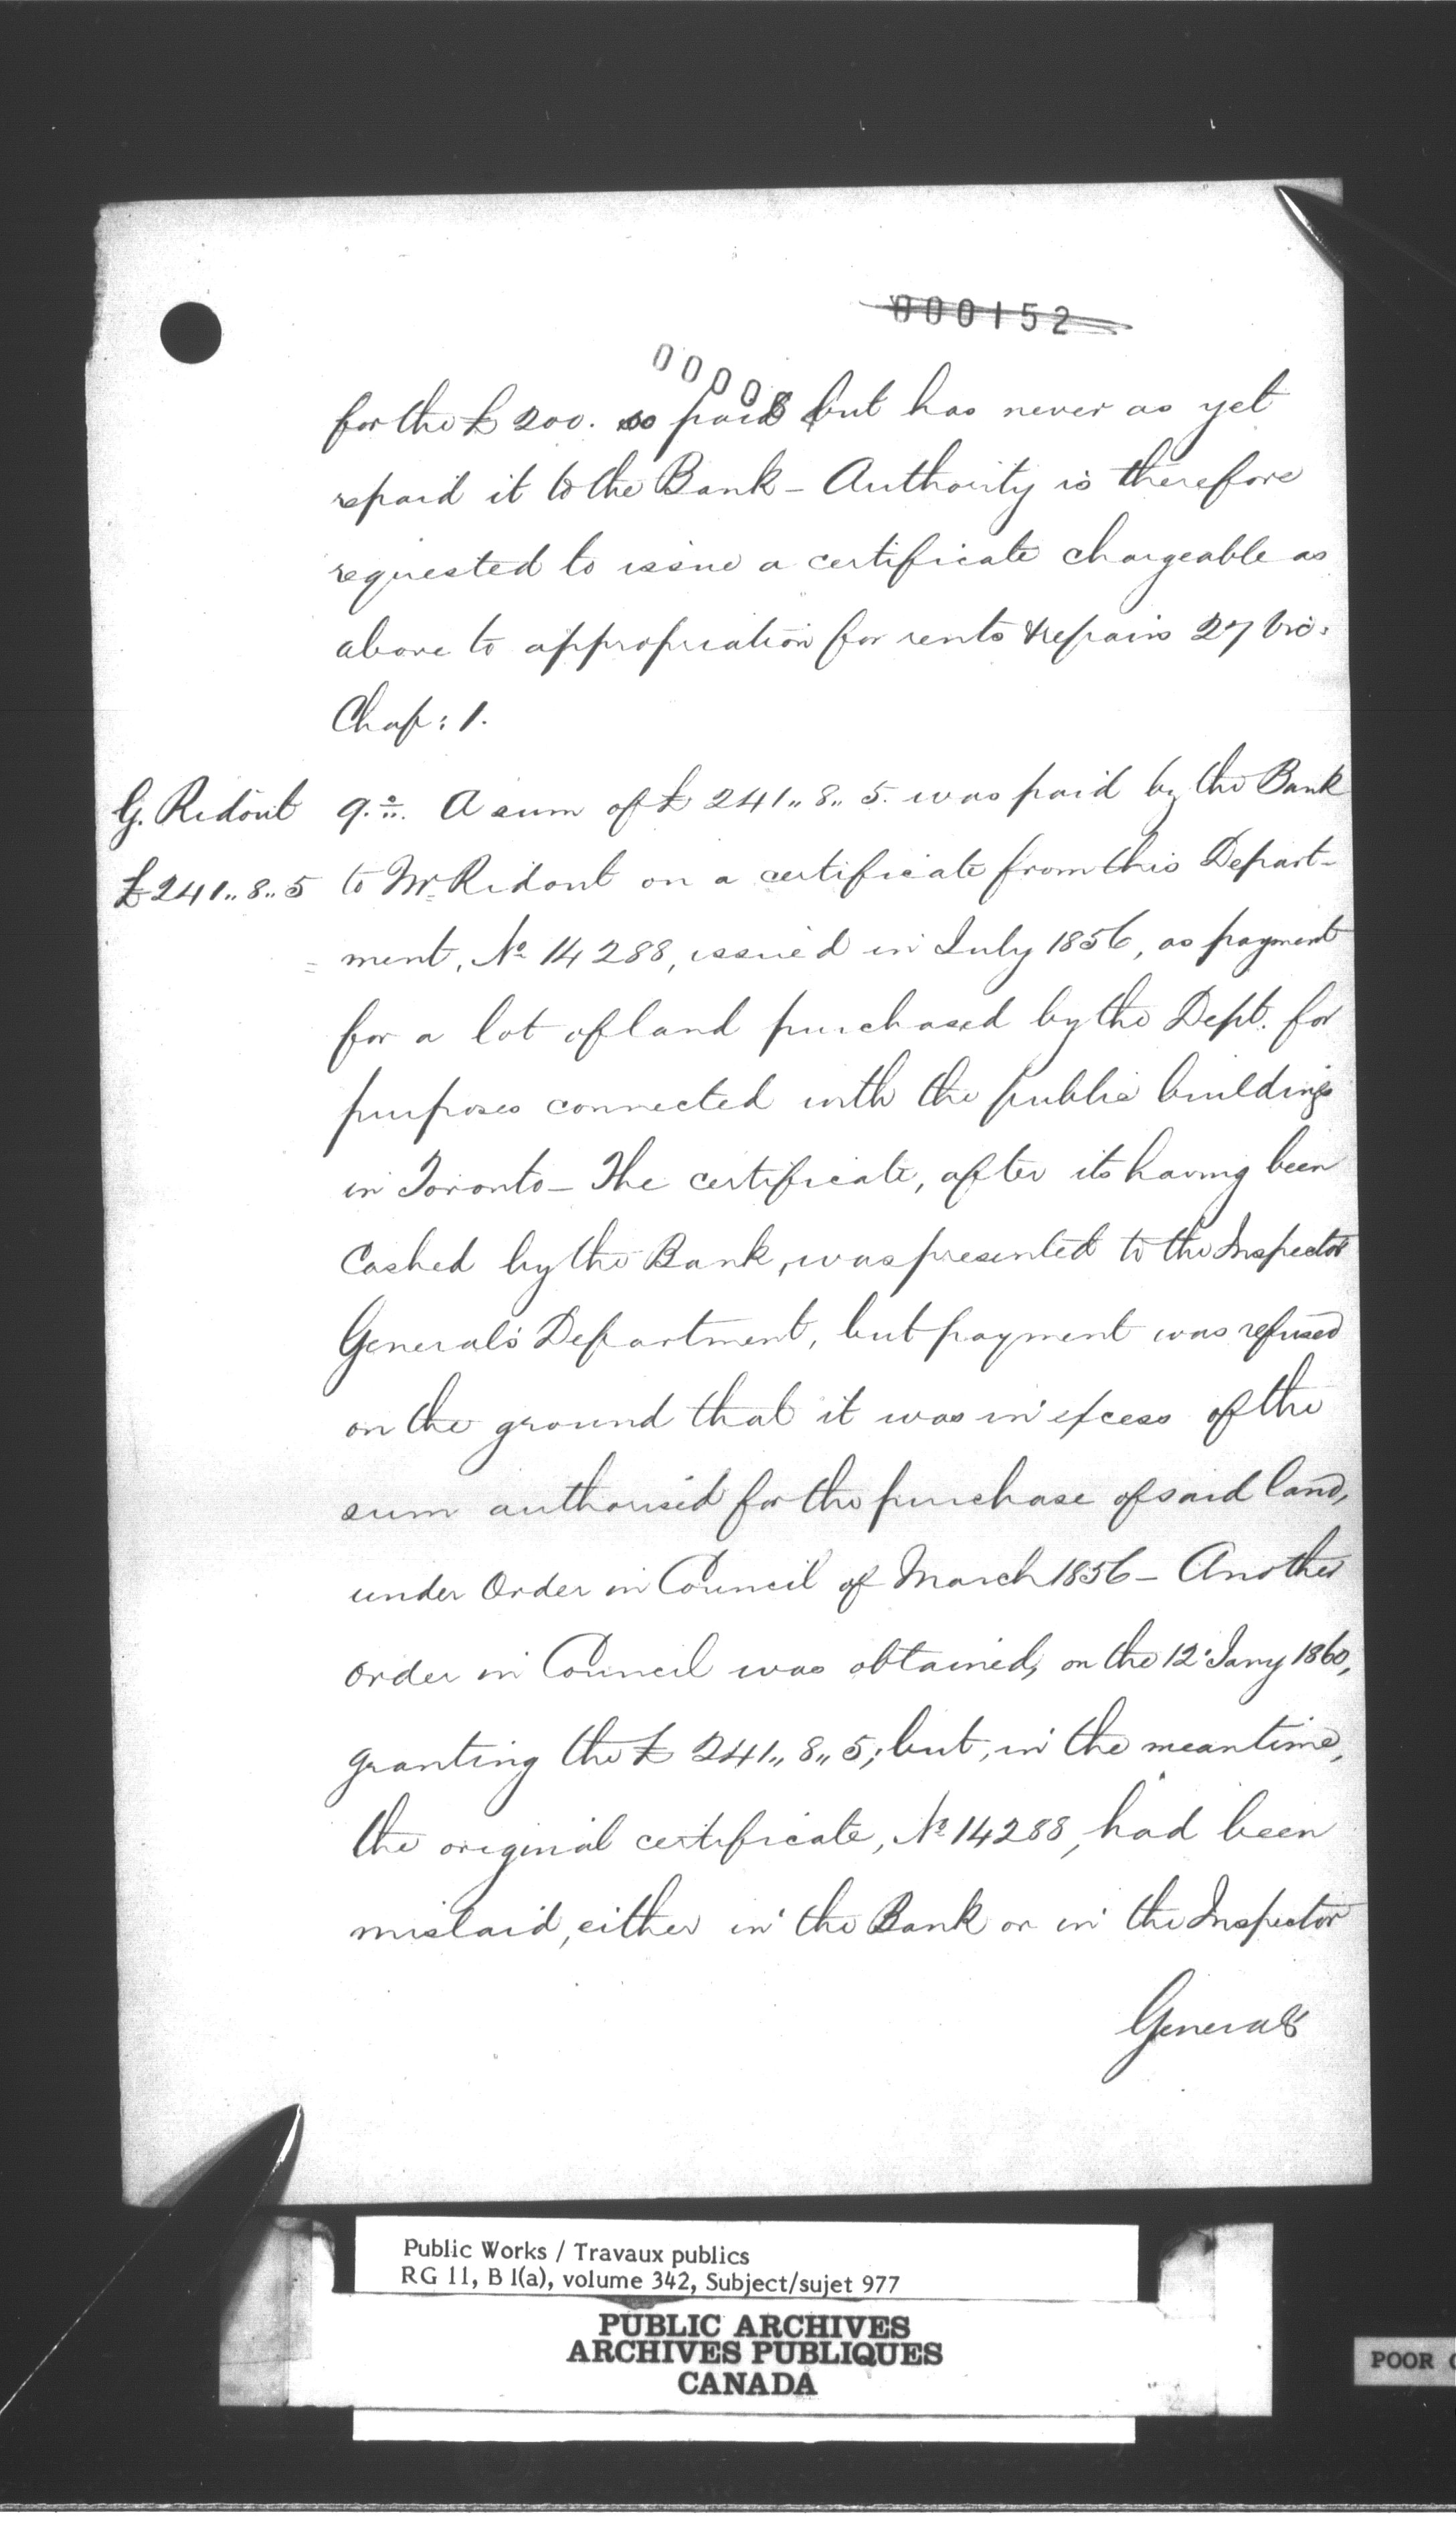 000152
0000
for the £ 200. so paid but has never as yet
repaid it to the Bank - Authority is therefore
requested to issue a certificate chargeable as
above to appropriation for rents & repairs 27 Vic:
Chap: 1.
G. Ridout 9.o. A sum of £ 241,, 8,, 5. was paid by the Bank
£241,, 8,, 5 to Mr. Ridout on a certificate from this Depart-
ment, No 14288, issued in July 1856, as payment
for a lot of land purchased by the Dept. for
purposes connected with the public buildings
in Toronto - The certificate, after its having been
Cashed by the Bank, was presented to the Inspector
General's Department, but payment was refused
on the ground that it was in excess of the
sum authorised for the purchase of said land,
under Order in Council of March 1856 - Another
Order in Council was obtained, on the 12 Jany 1860,
granting the £ 241,, 8,, 5; but, in the meantime,
the original certificate, No 14288, had been
mislaid, either in the Bank or in the Inspector
Generals
Public Works / Travaux publics
RG 11, B 1(a), volume 342, Subject/sujet 977
PUBLIC ARCHIVES
ARCHIVES PUBLIQUES
CANADA
POOR